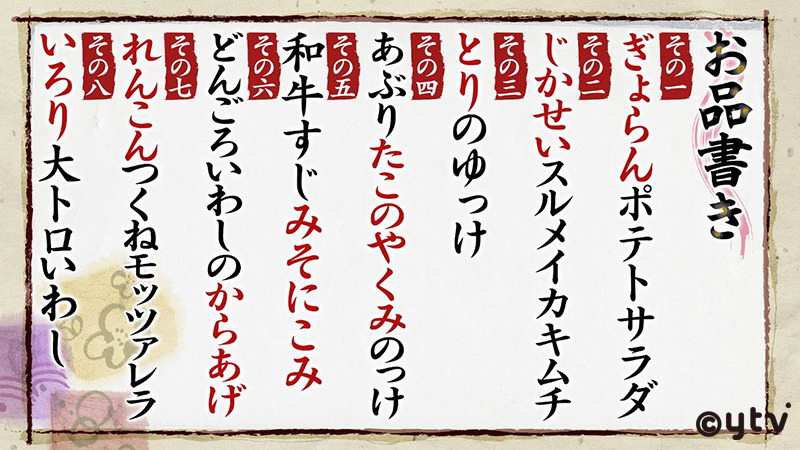 お品書き
その一
ぎょらんポテトサラダ
その二
じかせいスルメイカキムチ
その三
とりのゆっけ
その四
あぶりたこのやくみのっけ
その五
和牛すじみそにこみ
その六
どんごろいわしのからあげ
その七
れんこんつくねモッツァレラ
その八
いろり大トロいわし
©ytv